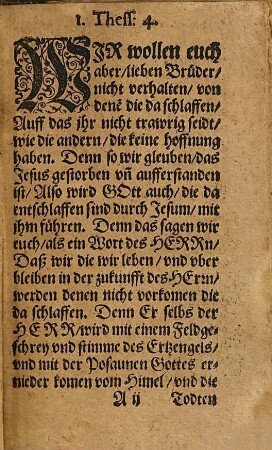 1. Thess: 4.
WIR wollen euch
aber/lieben Brüder/
nicht verhalten/von
denē die da schlaffen/
Auff das jhr nicht trawrig seidt/
wie die andern/die keine hoffnung
haben. Denn so wir gleuben/das
Jesus gestorben vn̄ aufferstanden
ist/Also wird GOtt auch/die da
entschlaffen sind durch Jesum/mit
jhm führen. Denn das sagen wir
euch/als ein Wort des HERRn/
Daß wir die wir leben/vnd vber
bleiben in der zukunfft des HErrn/
werden denen nicht vorkomen die
da schlaffen. Denn Er selbs der
HERR/wird mit einem Feldge-
schrey vnd stimme des Ertzengels/
vnd mit der Posaunen Gottes er-
nieder komen vom Himel/vnd die
A ij Todten